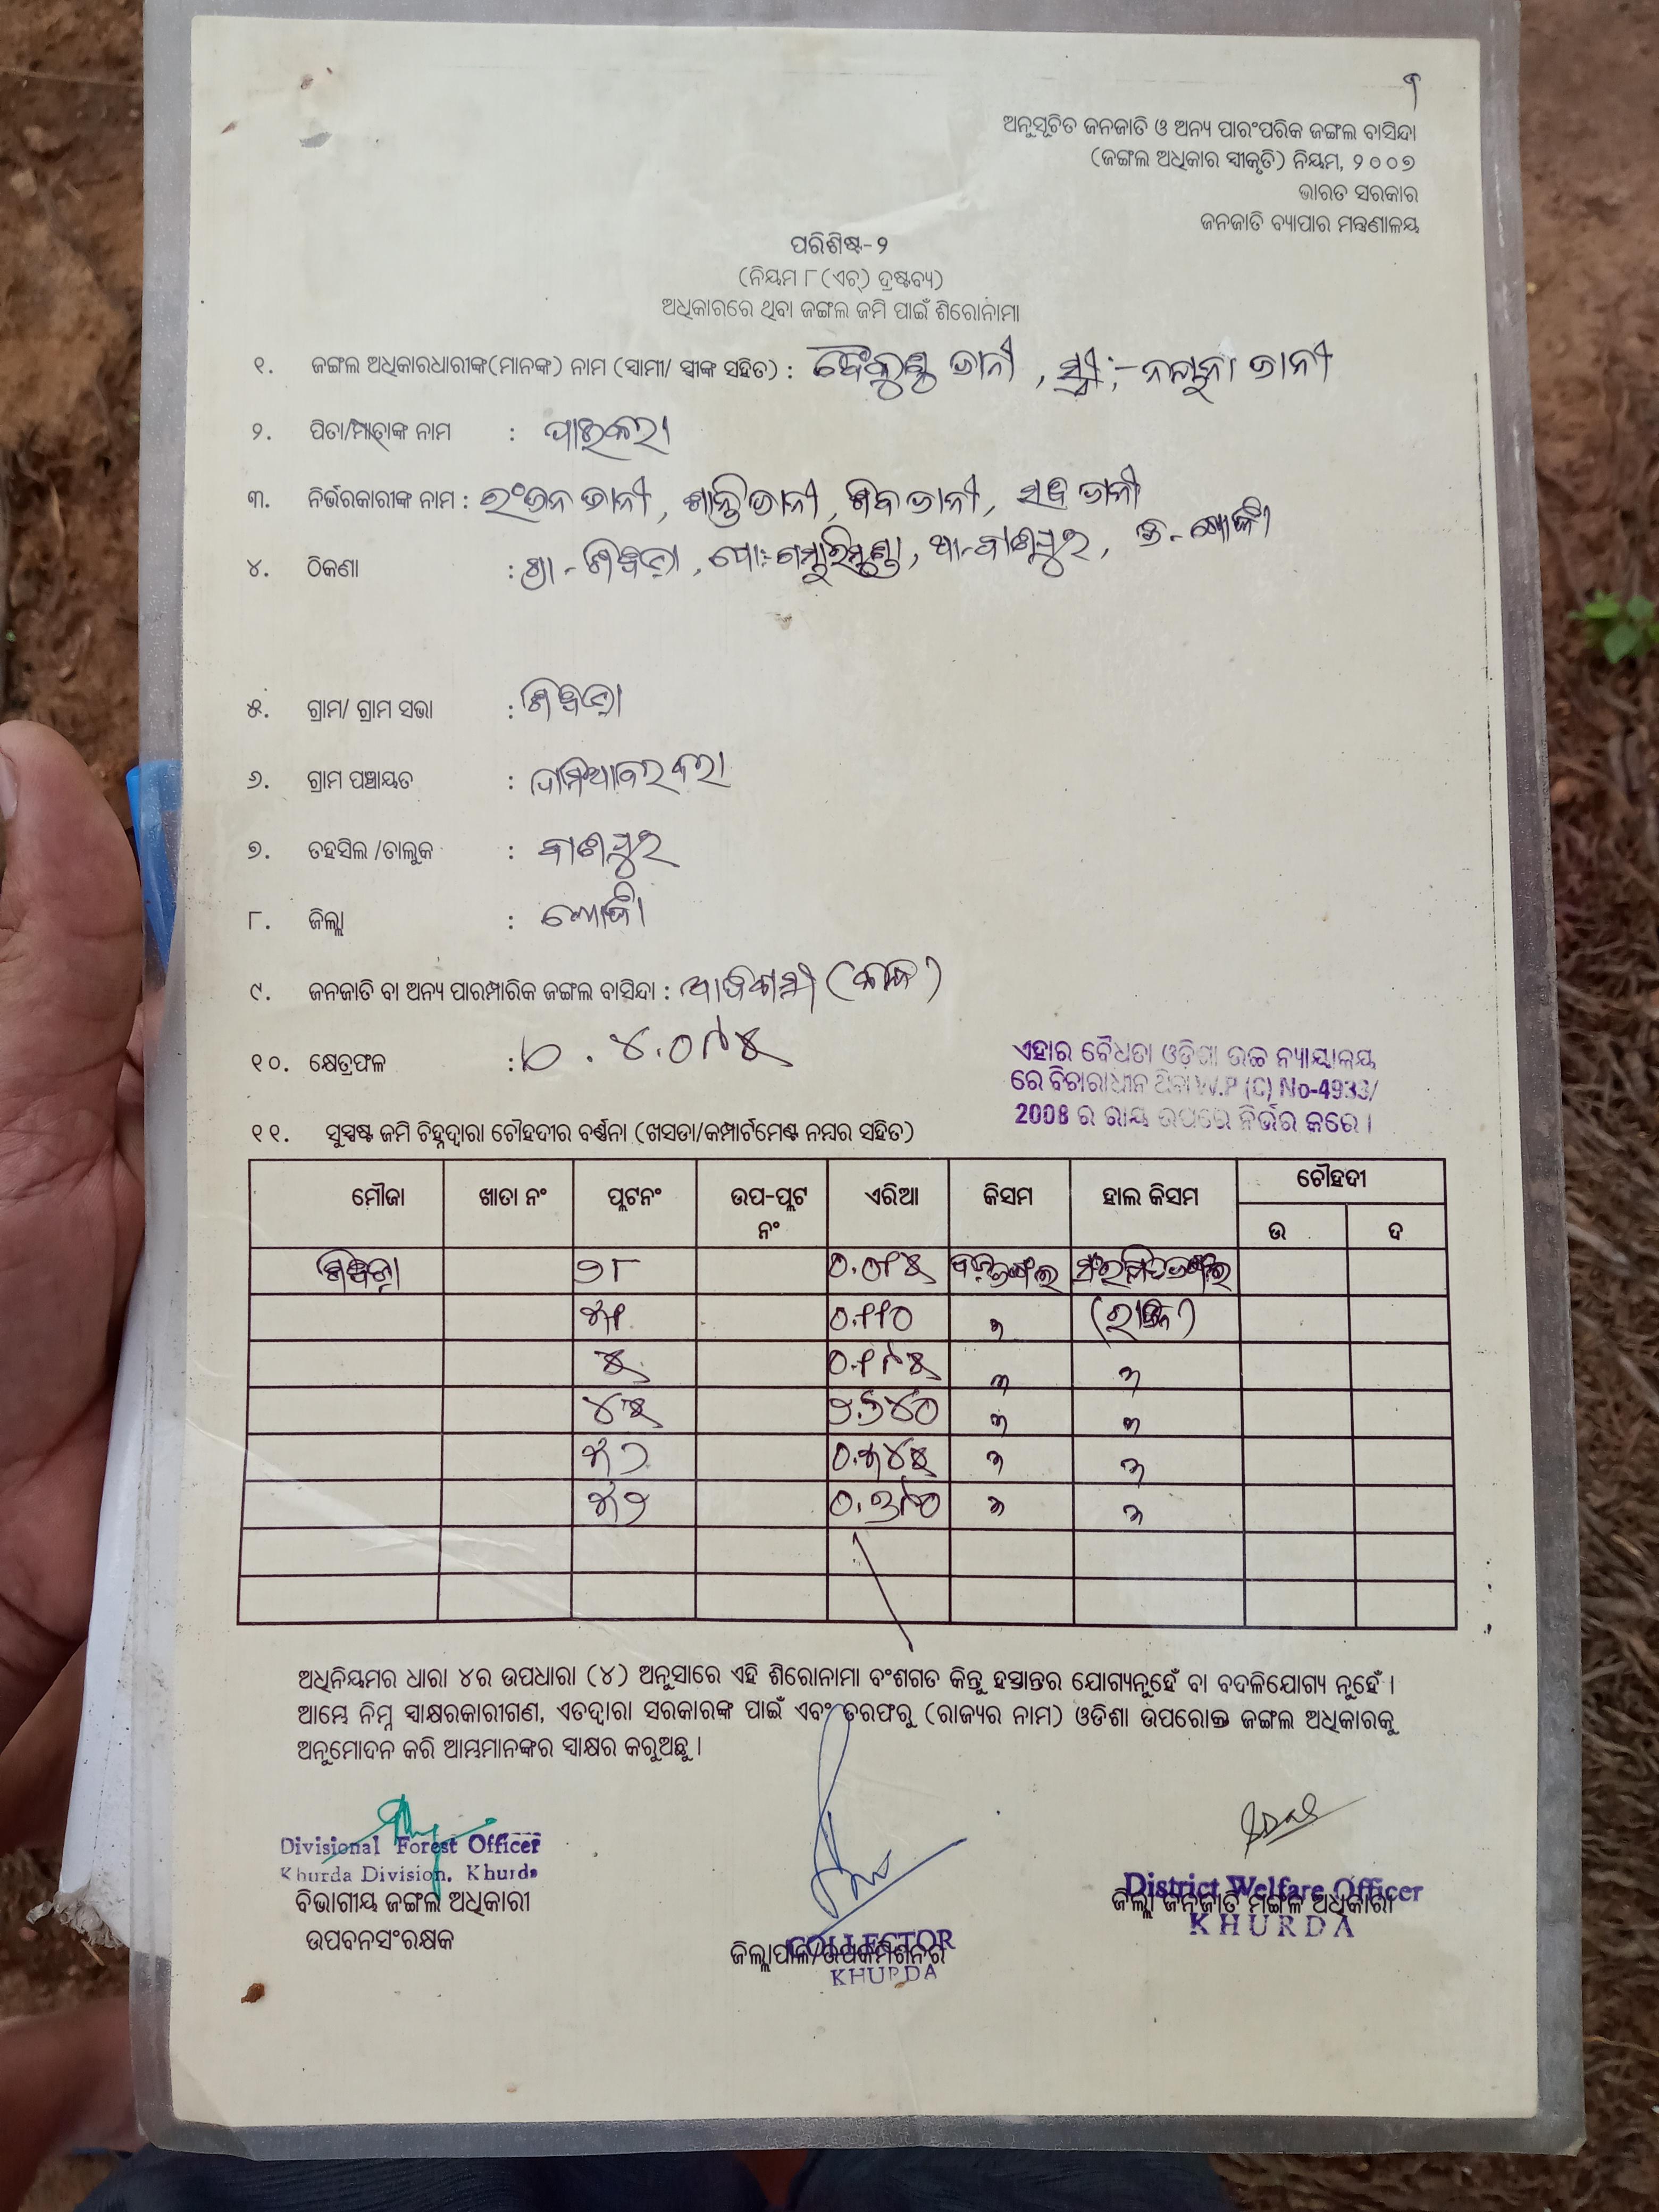 ୧
ଅନୁସୂଚିତ ଜନଜାତି ଓ ଅନ୍ୟ ପାରଂପରିକ ଜଙ୍ଗଲ ବାସିନ୍ଦା
(ଜଙ୍ଗଲ ଅଧିକାର ସ୍ୱୀକୃତି) ନିୟମ, ୨୦୦୭
ଭାରତ ସରକାର
ଜନଜାତି ବ୍ୟାପାର ମନ୍ତ୍ରଣାଳୟ
ପରିଶିଷ୍ଟ-୨
(ନିୟମ ୮(ଏଚ୍) ଦ୍ରଷ୍ଟବ୍ୟ)
ଅଧିକାରରେ ଥିବା ଜଙ୍ଗଲ ଜମି ପାଇଁ ଶିରୋନାମା
୧. ଜଙ୍ଗଲ ଅଧିକାରଧାରୀଙ୍କ(ମାନଙ୍କ) ନାମ (ସ୍ୱାମୀ/ ସ୍ତ୍ରୀଙ୍କ ସହିତ) : ବୈକୁଣ୍ଠ ଜାନୀ, ସ୍ତ୍ରୀ:- ଜାନୀ
୨. ପିତା/ମାତାଙ୍କ ନାମ :
୩. ନିର୍ଭରକାରୀଙ୍କ ନାମ : ରଂଜନ ଜାନୀ, ଶାନ୍ତି ଜାନୀ, ଶିବ ଜାନୀ, ଜାନୀ
୪. ଠିକଣା : ଗ୍ରା- , ପୋ:- , ଥା-ବାଣପୁର, ଜି-ଖୋର୍ଦ୍ଧା
୫. ଗ୍ରାମ/ ଗ୍ରାମ ସଭା :
୬. ଗ୍ରାମ ପଞ୍ଚାୟତ : ଦାମିଆବରବରା
୭. ତହସିଲ /ତାଲୁକ : ବାଣପୁର
୮. ଜିଲ୍ଲା : ଖୋର୍ଦ୍ଧା
୯. ଜନଜାତି ବା ଅନ୍ୟ ପାରମ୍ପାରିକ ଜଙ୍ଗଲ ବାସିନ୍ଦା : ଆଦିବାସୀ (କନ୍ଧ)
୧୦. କ୍ଷେତ୍ରଫଳ : ୪.୦୯୫
ଏହାର ବୈଧତା ଓଡ଼ିଶା ଉଚ୍ଚ ନ୍ୟାୟାଳୟ
ରେ ବିଚାରାଧୀନ ଥିବା W.P (C) No-4933/
2008 ର ରାୟ ଉପରେ ନିର୍ଭର କରେ ।
୧୧. ସୁସ୍ପଷ୍ଟ ଜମି ଚିହ୍ନଦ୍ୱାରା ଚୌହଦୀର ବର୍ଣ୍ଣନା (ଖସଡା/କମ୍ପାର୍ଟମେଣ୍ଟ ନମ୍ବର ସହିତ)
ମୌଜା ଖାତା ନଂ ପ୍ଲଟନଂ ଉପ-ପ୍ଲଟ ନଂ ଏରିଆ କିସମ ହାଲ କିସମ ଚୌହଦୀ
ଉ ଦ
୨୮ ୦.୦୧୫
୫୧ ୦.୧୧୦ ”
୫ ୦.୧୯୫ ” ”
୪୫ ୨.୬୪୦ ” ”
୫୨ ୦.୭୪୫ ” ”
୫୨ ୦.୩୯୦ ” ”
ଅଧିନିୟମର ଧାରା ୪ର ଉପଧାରା (୪) ଅନୁସାରେ ଏହି ଶିରୋନାମା ବଂଶଗତ କିନ୍ତୁ ହସ୍ତାନ୍ତର ଯୋଗ୍ୟନୁହେଁ ବା ବଦଳିଯୋଗ୍ୟ ନୁହେଁ ।
ଆମ୍ଭେ ନିମ୍ନ ସ୍ୱାକ୍ଷରକାରୀଗଣ, ଏତଦ୍ୱାରା ସରକାରଙ୍କ ପାଇଁ ଏବଂ ତରଫରୁ (ରାଜ୍ୟର ନାମ) ଓଡିଶା ଉପରୋକ୍ତ ଜଙ୍ଗଲ ଅଧିକାରକୁ
ଅନୁମୋଦନ କରି ଆମ୍ଭମାନଙ୍କର ସ୍ୱାକ୍ଷର କରୁଅଛୁ ।
Divisional Forest Officer
Khurda Division, Khurda
ବିଭାଗୀୟ ଜଙ୍ଗଲ ଅଧିକାରୀ
ଉପବନସଂରକ୍ଷକ
COLLECTOR
ଜିଲ୍ଲାପାଳ/ଉପକମିଶନର
KHURDA
District Welfare Officer
ଜିଲ୍ଲା ଜନଜାତି ମଙ୍ଗଳ ଅଧିକାରୀ
KHURDA